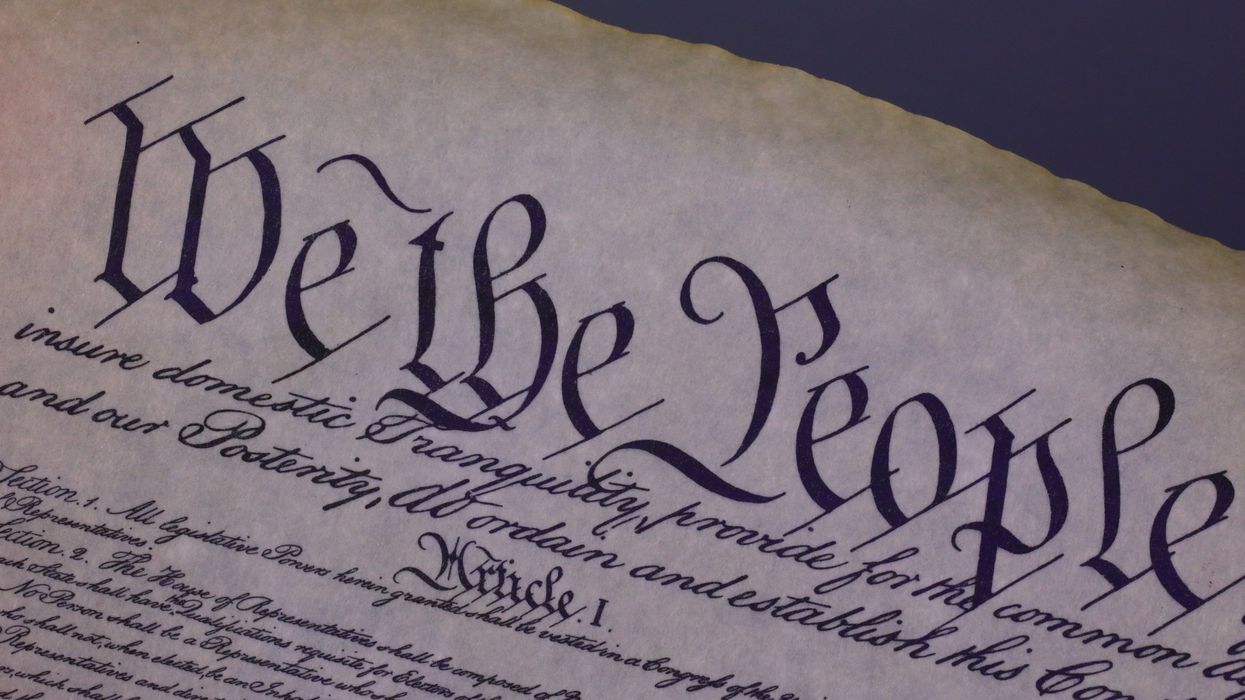 We the People
insure domestic Tranquility, provide for the common
and our Posterity, do ordain and establish this
Article. I
Section. 1. All legislative Powers herein granted shall be vested in a Congress of the
Representatives.
Section. 2. The House of Representatives shall be composed of
each State shall have Qualifications requisite for Electors of
No Person shall be a Representative who
who shall not, when elected, be an
Representatives and
which shall